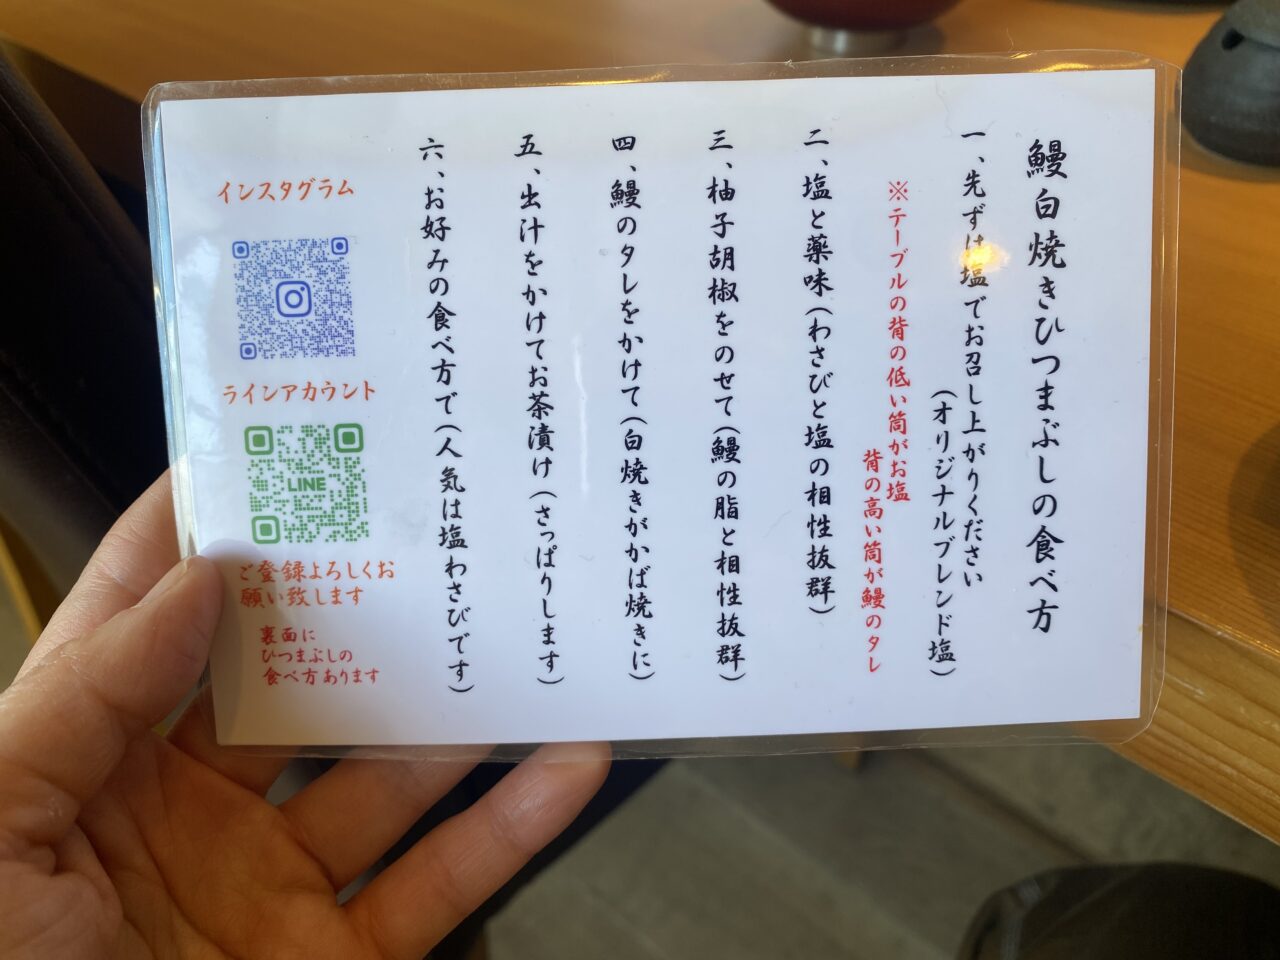 鰻白焼きひつまぶしの食べ方
一、先ずは塩でお召し上がりください
(オリジナルブレンド塩)
※テーブルの背の低い筒がお塩
背の高い筒が鰻のタレ
二、塩と薬味(わさびと塩の相性抜群)
三、柚子胡椒をのせて(鰻の脂と相性抜群)
四、鰻のタレをかけて(白焼きがかば焼きに)
五、出汁をかけてお茶漬け(さっぱりします)
六、お好みの食べ方で(人気は塩わさびです)
インスタグラム
ラインアカウント
LINE
ご登録よろしくお
願い致します
裏面に
ひつまぶしの
食べ方あります